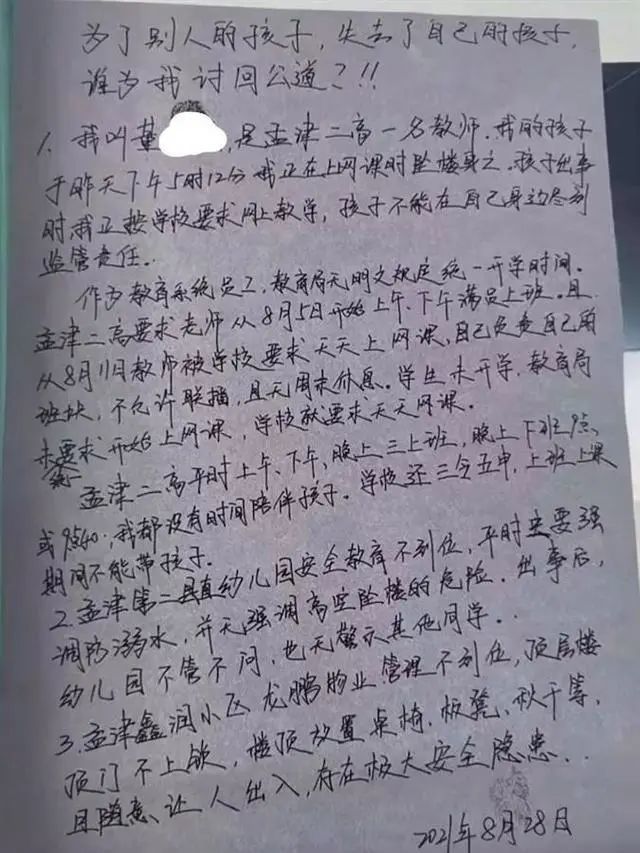 为了别人的孩子,失去了自己的孩子,
谁为我讨回公道?!!
1、我叫董 ,是孟津二高一名教师.我的孩子
于昨天下午5时12分我正在上网课时坠楼身亡.孩子出事
时,我正按学校要求网上教学,孩子不能在自己身边尽到
监管责任.
作为教育系统员工,教育局无明文规定统一开学时间.
孟津二高要求老师从8月5日开始上午、下午满员上班.且
从8月11日教师被学校要求天天上网课,自己负责自己的
班块,不允许联播,且无周末休息.学生未开学,教育局
未要求开始上网课,学校就要求天天网课.
孟津二高平时上午、下午,晚上三上班,晚上下班9点
或9点40,我都没有时间陪伴孩子.学校还三令五申,上班上课
期间不能带孩子.
2.孟津第二县直幼儿园安全教育不到位,平时主要强
调防溺水,并无强调高空坠楼的危险.出事后,
幼儿园不管不问,也无警示其他同学..
3.孟津鑫润小区龙鹏物业管理不到位,顶层楼
顶门不上锁,楼顶放置桌椅、板凳、秋千等,
且随意让人出入,存在极大安全隐患..
2021年8月28日